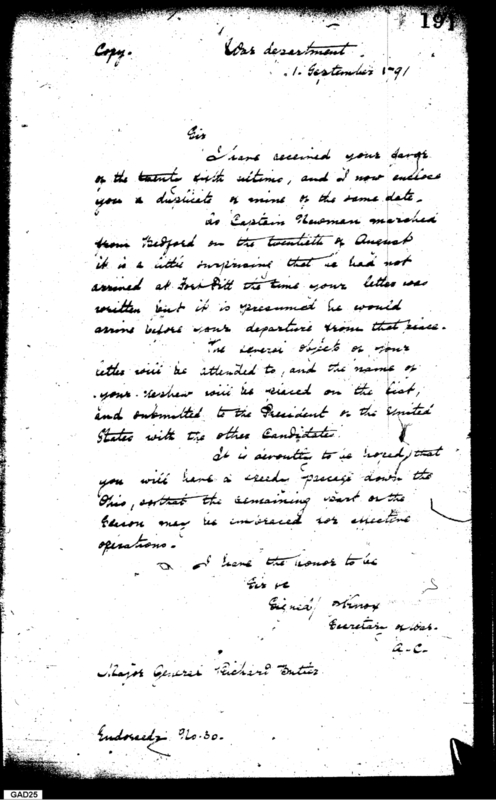 191
Copy. War department.
1. September 1791
Sir
I have received your
of the twenty sixth ultimo, and I now enclose
you a duplicate of mine of the same date.
As Captain Newman marched
from Bedford on the twentieth of August
it is a little surprising that he had not
arrived at Fort Pitt the time your letter was
written but it is presumed he would
arrive before your departure from that place.
The several objects of your
letter will be attended to, and the name of
your nephew will be placed on the list,
and submitted to the President of the United
States with the other Candidates.
It is devoutly to be hoped, that
you will have a speedy passage down the
Ohio, so that the remaining part of the
Season may be embraced for effective
operations.
I have the honor to be
Sir &c
Signed/ HKnox
Secretary of War.
A.C.
Major General Richard Butler
Endorsed No. 30.
GAD25